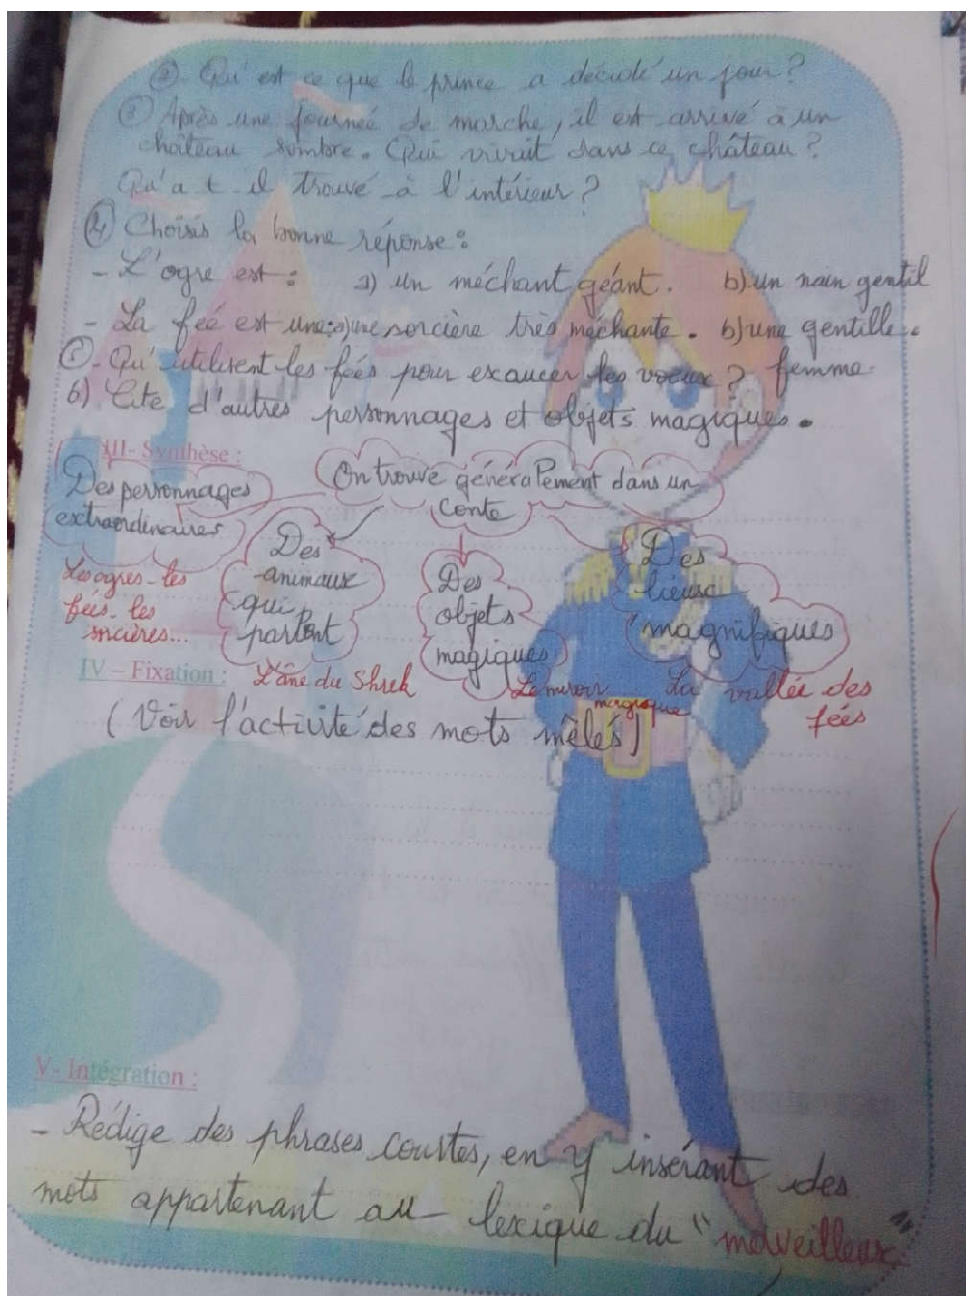 ② - Qu'est ce que le prince a décidé un jour?
③ Après une journée de marche, il est arrivé à un
château sombre. Qui vivait dans ce château?
Qu'a t-il trouvé à l'intérieur?
④ Choisis la bonne réponse:
- L'ogre est: a) un méchant géant. b) un nain gentil
- La feé est une: a) une sorcière très méchante. b) une gentille.
femme.
⑤ - Qu'utilisent les fées pour exaucer les voeux?
6) Cite d'autres personnages et objets magiques.
III- Synthèse :
On trouve généralement dans un
conte
Des personnages
extraordinaires
Les ogres - les
fées - les
sorcières...
Des
animaux
qui
parlent
L'âne du Shrek
Des
objets
magiques
Le miroir
magique
Des
lieux
magnifiques
La vallée des
fées
IV – Fixation :
(Voir l'activité des mots mêlés)
V- Intégration :
- Rédige des phrases courtes, en y insérant des
mots appartenant au lexique du "merveilleux"